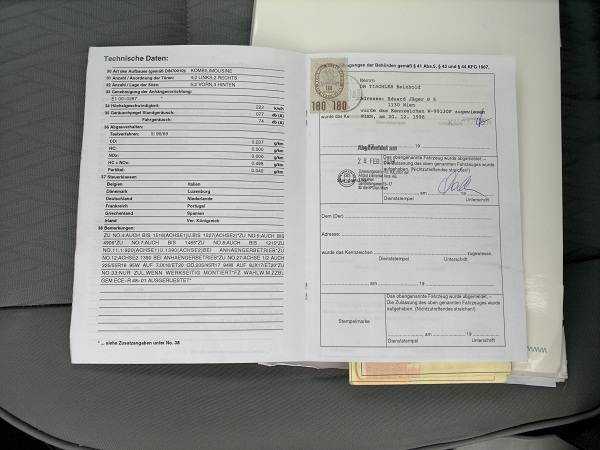 Technische Daten:
30 Art des Aufbaues (gemäß D6470010): KOMBILIMOUSINE
31 Anzahl / Anordnung der Türen: 4,2 LINKS,2 RECHTS
32 Anzahl / Lage der Sitze: 5,2 VORN,3 HINTEN
33 Genehmigung der Anhängevorrichtung:
E1 00-0287
34 Höchstgeschwindigkeit: 222 km/h
35 Geräuschpegel Standgeräusch: 077 db (A)
Fahrgeräusch: 74 db (A)
36 Abgasverhalten:
Testverfahren: 96/69
CO: 0,037 g/km
HC: 0.000 g/km
NOx: 0.000 g/km
HC + NOx: 0.498 g/km
Partikel: 0.040 g/km
37 Steuerklassen:
Belgien Italien
Dänemark Luxemburg
Deutschland Niederlande
Frankreich Portugal
Griechenland Spanien
Irland Ver. Königreich
38 Bemerkungen:
ZU NO.4:AUCH BIS 1516(ACHSE1)U.BIS 1527(ACHSE2)*ZU NO.5:AUCH BIS
4906*ZU NO.7:AUCH BIS 1465*ZU NO.6:AUCH BIS 1215*ZU
NO.11.1:920(ACHSE1)U.1390(ACHSE2)BEI ANHAENGERBETRIEB*ZU
NO.12:ACHSE2 1390 BEI ANHAENGERBETRIEB*ZU NO.27:ACHSE 1/2 AUCH
225/55R16 95W AUF 7JX16/ET20 OD.235/45R17 94W AUF 8JX17/ET20*ZU
NO.33:NUR ZUL.WENN WERKSEITIG MONTIERT*FZ.WAHLW.M.ZZBL
GEM.ECE-R 48-01 AUSGERUESTET*
* ... siehe Zusatzangaben unter No. 38
der Behörden gemäß § 41 Abs.5, § 43 und § 44 KFG 1967.
180 180
DR TISCHLER Reinhold
Adresse: Eduard Jäger G 6
1130 Wien
wurde das Kennzeichen W-99130F zugewiesen
WIEN, am 30. 12. 1998
Abgemeldet am
Das obengenannte Fahrzeug wurde abgemeldet. –
Die Zulassung des oben genannten Fahrzeuges wurde
aufgehoben. (Nichtzutreffendes streichen!)
Unterschrift
Dem (Der)
Adresse:
wurde das Kennzeichen zugewiesen.
am 19
Dienststempel Unterschrift
Stempelmarke
Das obengenannte Fahrzeug wurde abgemeldet. –
Die Zulassung des oben genannten Fahrzeuges wurde
aufgehoben. (Nichtzutreffendes streichen!)
am 19
Dienststempel Unterschrift